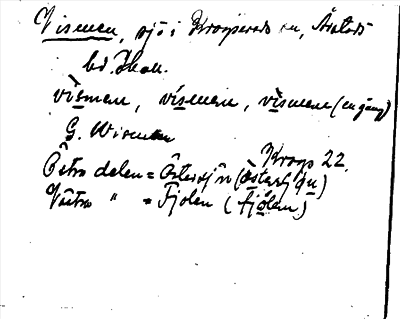 Vismen, sjö i Krogserads sn, Åstads
hd. Hall.
vìsmen, vísmen, vìsmen (en gång)
G. Wismen
Krogs 22.
Östra delen = Östersjön (östersjön)
Västra " = Fjolen (fjòlen)